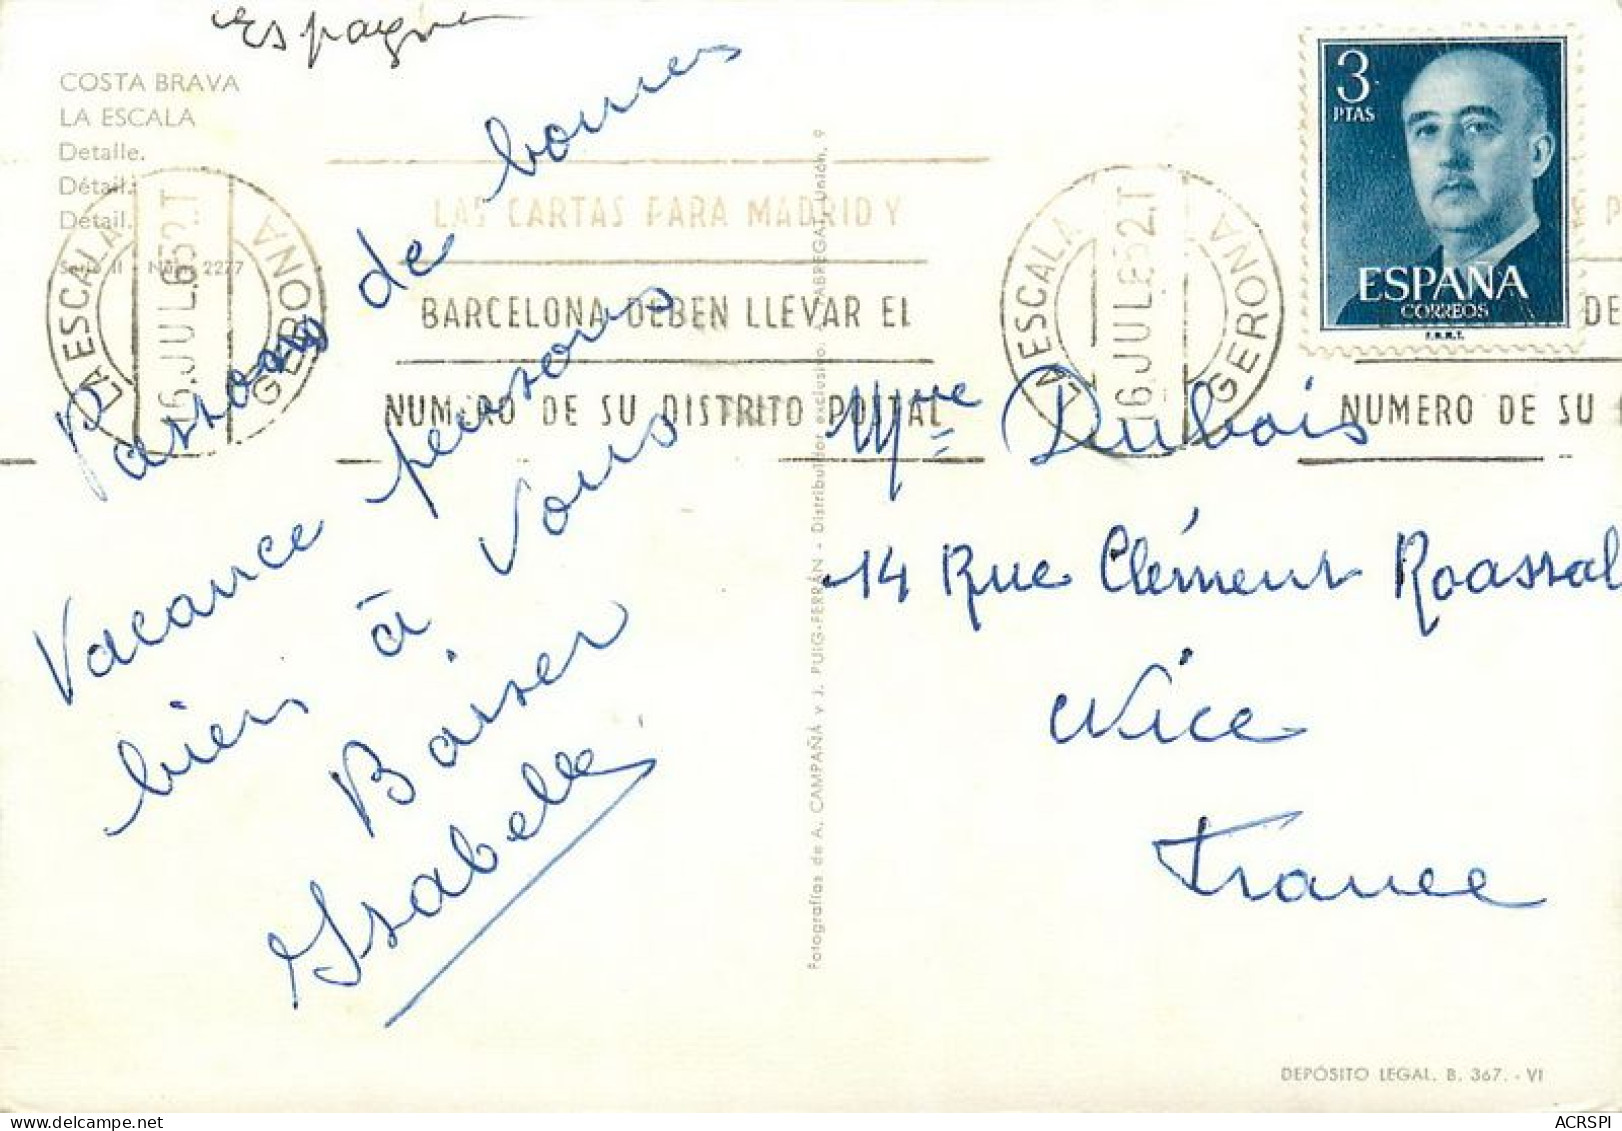 Espagne
COSTA BRAVA
LA ESCALA
Detalle.
Détail.
Detail.
Serie II - Núm. 2277
Passons de bonnes
Vacance pensons
bien à Vous
Baiser
Isabelle
LA ESCALA
16.JUL.65 2.T
GERONA
LAS CARTAS PARA MADRID Y
BARCELONA DEBEN LLEVAR EL
NUMERO DE SU DISTRITO POSTAL
Fotografías de A. CAMPAÑÁ y J. PUIG-FERRÁN - Distribuidor exclusivo: A. FABREGAT, Unión, 9
LA ESCALA
16.JUL.65 2.T
GERONA
P
DE
NUMERO DE SU
3
PTAS
ESPAÑA
CORREOS
F.N.M.T.
Mme Dubois
14 Rue Clément Roassal
Nice
France
DEPÓSITO LEGAL. B. 367. - VI
ACRSPI